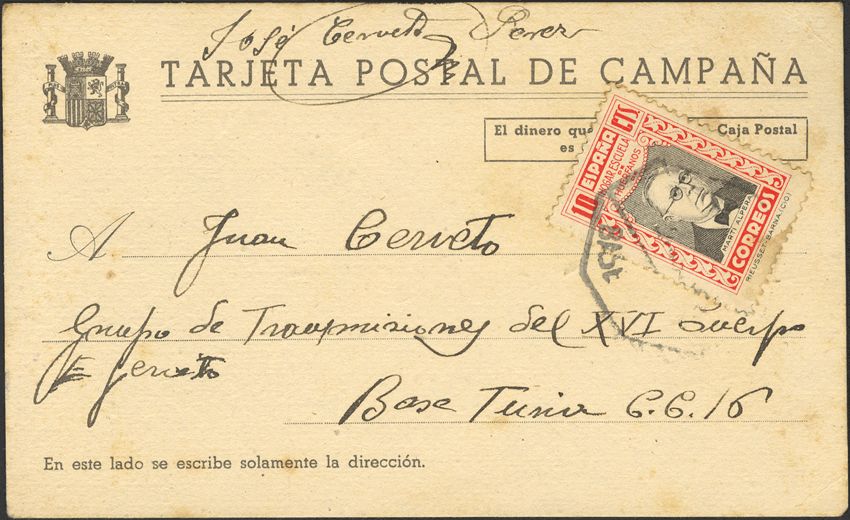 José Cerveto Perez
TARJETA POSTAL DE CAMPAÑA
El dinero que Caja Postal
es
10 ESPAÑA CTS
HOGAR ESCUELA
DE
HUERFANOS
MARTI ALPERA
CORREOS
RIEUSSET-BARNA. (C.O)
BASE
A Juan Cerveto
Grupo de Trasmisiones del XVI cuerpo
Ejercito
Base Turia C.C. 16
En este lado se escribe solamente la dirección.